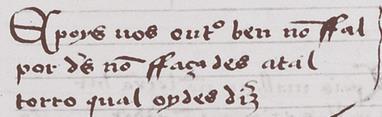 E poys uos outº ben nō ffal
por ds̄ nō ffaçades atal
torto qual oydes diz̄